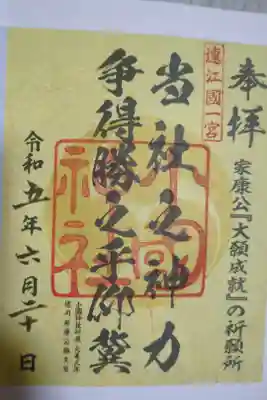 奉拝
遠江國一宮
家康公『大願成就』の祈願所
当社之神力
争得勝之乎仰冀
小國神社
令和五年六月二十日